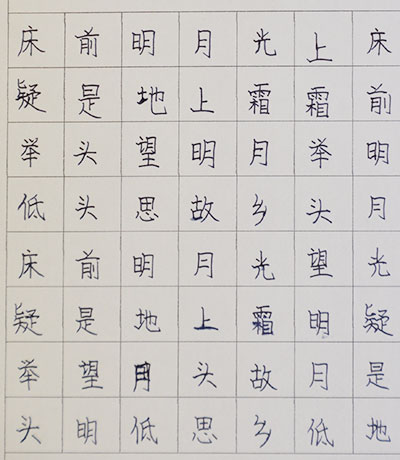 床前明月光上床
疑是地上霜霜前
举头望明月举明
低头思故乡头月
床前明月光望光
疑是地上霜明疑
举望月头故月是
头明低思乡低地